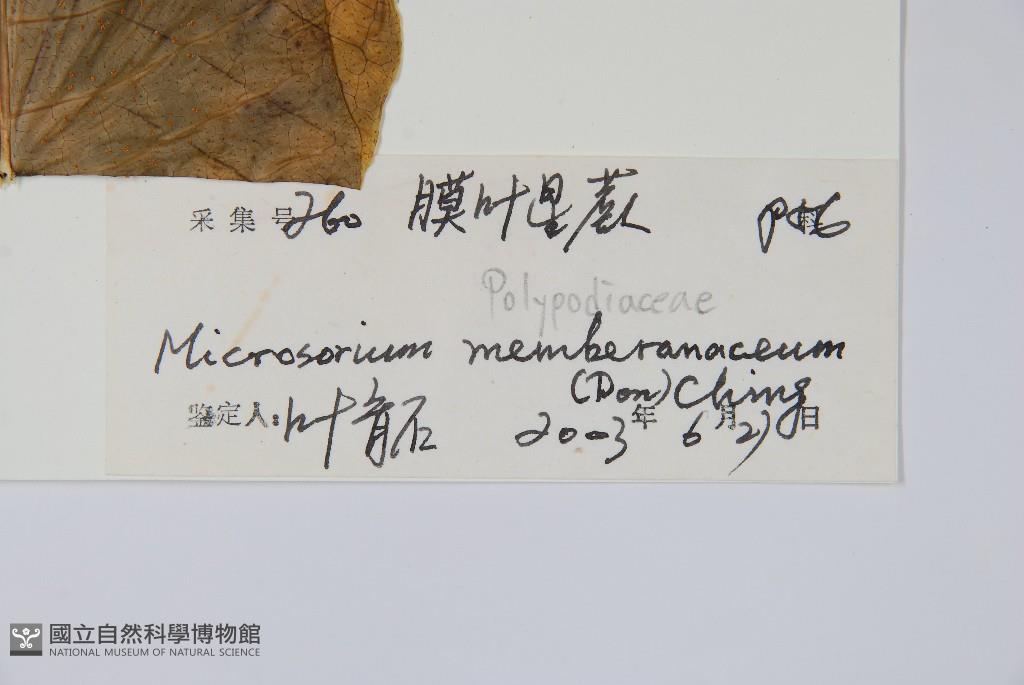 采集号 260 膜叶星蕨
Polypodiaceae
Microsorium memberanaceum
(Don) Ching
鉴定人: 叶育石 2003年 6月 27日
國立自然科學博物館
NATIONAL MUSEUM OF NATURAL SCIENCE